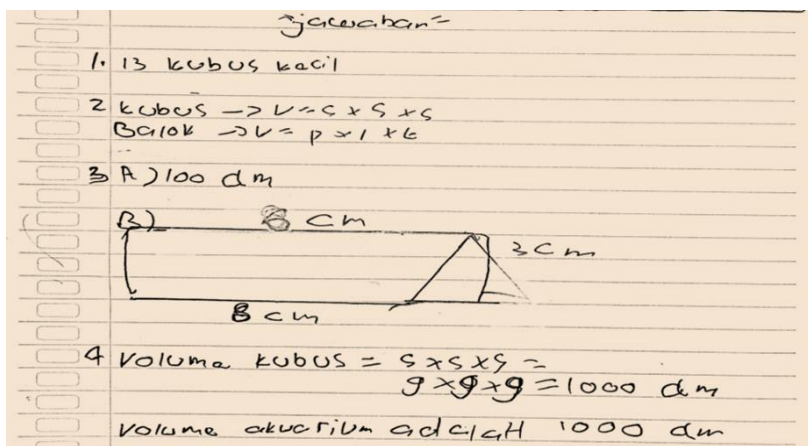 =jawaban=
1. 13 kubus kecil
2 kubus -> V = s x s x s
Balok -> V = p x l x t
3 A) 100 dm
B) 8 cm
3 cm
8 cm
4 Voluma kubus = s x s x s =
9 x 9 x 9 = 1000 dm
Volume akuarium adalaH 1000 dm